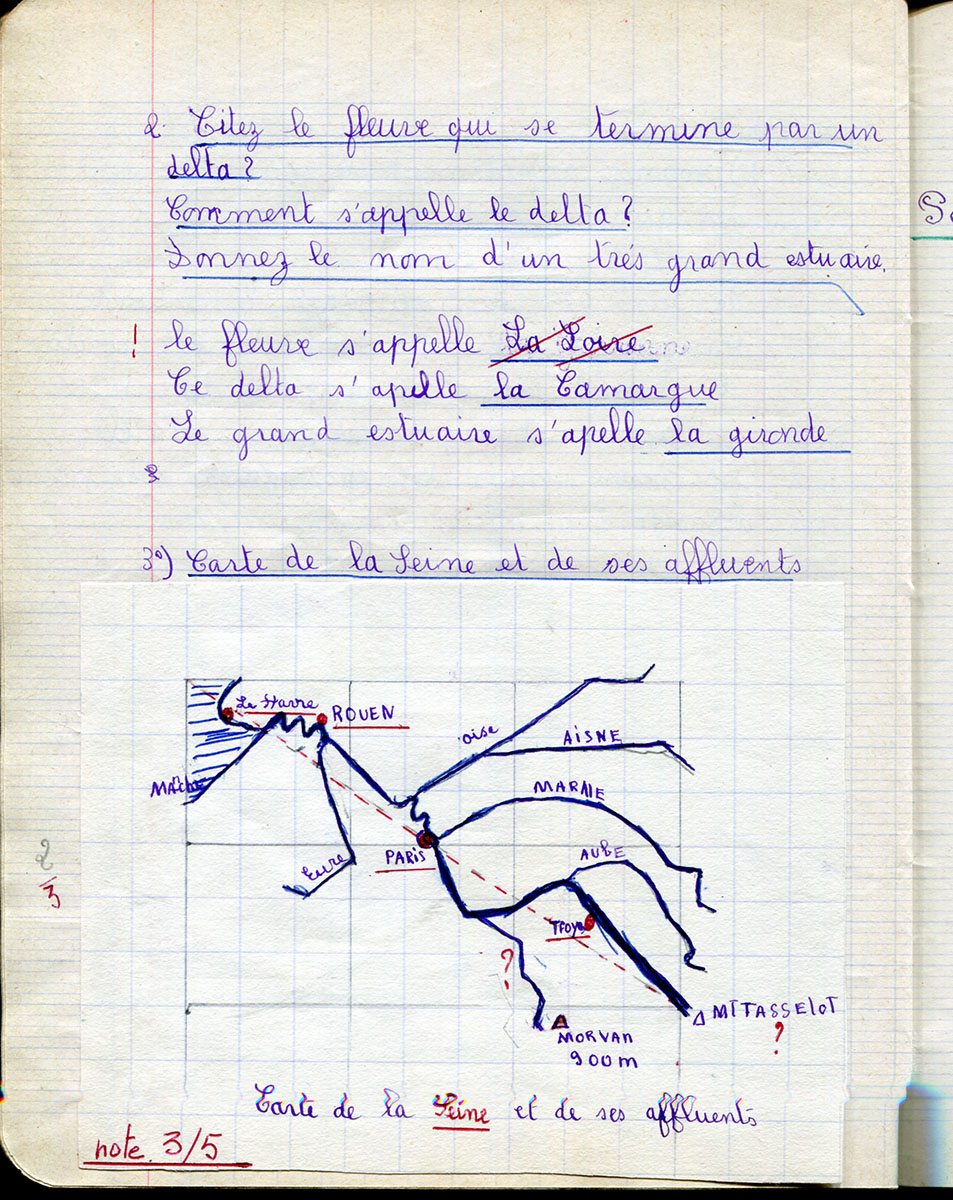 2. Citez le fleuve qui se termine par un
delta ?
Comment s'appelle le delta ?
Donnez le nom d'un trés grand estuaire.
! le fleuve s'appelle La Loire
Ce delta s'apelle la Camargue
Le grand estuaire s'apelle la gironde
3
3°) Carte de la Seine et de ses affluents
Le Havre
ROUEN
oise
AiSNE
MARNE
AUBE
PARIS
Eure
Troye
?
MORVAN
900 m
MT TASSElOT
?
2/3
Carte de la Seine et de ses affluents
note 3/5